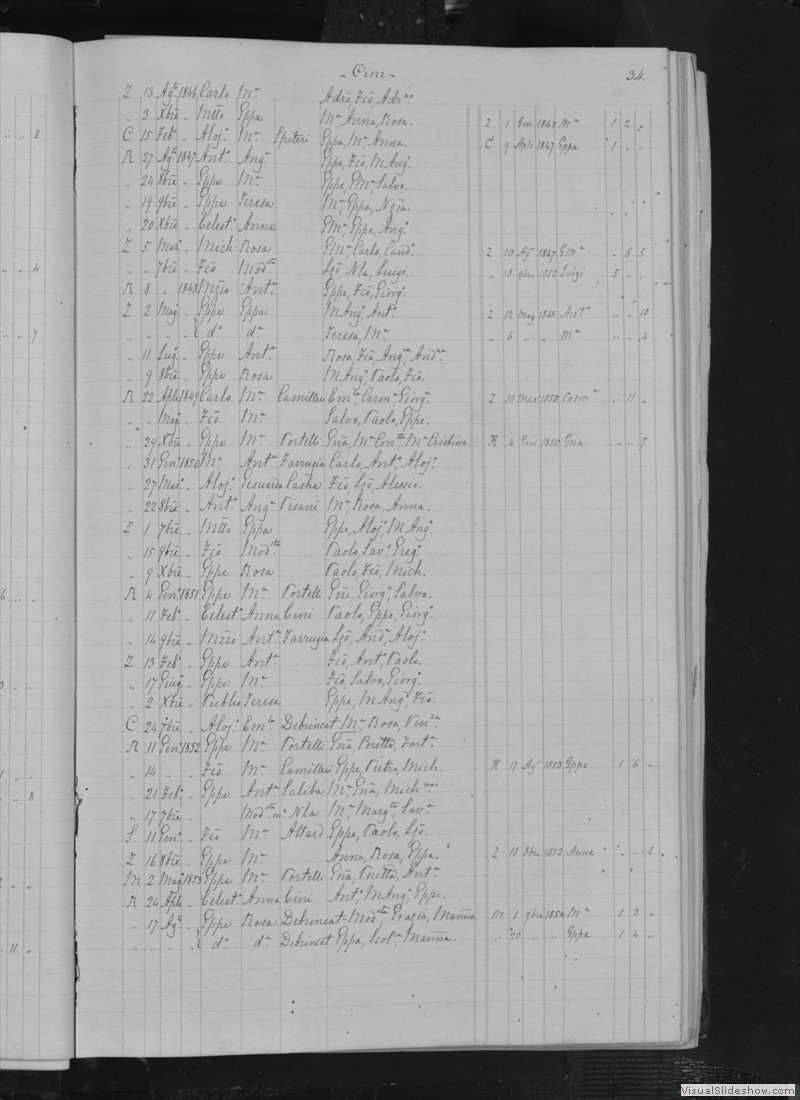 ~ Cini ~ 34.
Z 13 Agº 1846 Carlo Mª Adrº, Fcō, Adrⁿᵃ
„ 3 Xbre „ Mttō Gppa Mª, Anna, Rosa. Z 1 Gen 1848 Mª 1 2 5
C 15 Febº „ Alojº Mª Spiteri Gppa, Mª, Anna. C 9 Aple 1847 Gppa 1 „ „
R 27 Agº 1847 Antº Angª Gppe, Fcō, M Angª
„ 24 8bre „ Gppe Mª Gppe, GMª, Salvo.
„ 19 9bre „ Gppe Teresa Mª, Gppa, Nzia.
„ 20 Xbre „ Celestº Anna GMª, Gppe, Angº
Z 5 Marº „ Mich: Rosa GMª, Carlo, Candº Z 10 Agº 1847 GMª „ 6 5
„ „ 7bre „ Fcō Modᵗᵃ Ljō, Nla, Luigi. „ 18 9bre 1852 Luigi 5 „ „
R 8 „ 1848 Mzio Antª Gppe, Fcō, Giorgº
Z 2 Magº „ Gppe Gppa M Angª, Antª Z 12 Mag 1848 Antª „ „ 10
„ „ „ „ { dº dª Teresa, Mª „ 6 „ „ Mª „ „ 4
„ 11 Lugº „ Gppe Antª Rosa, Fcā, Angᶜᵃ, Andⁿᵃ
„ 9 8bre „ Gppe Rosa M Angº, Paolo, Fcō.
R 22 Aple 1849 Carlo Mª Camilleri Emᵃ, Carmª, Giorgº Z 10 Marº 1850 Carmª „ 11 „
„ „ Magº „ Fcō Mª Salvo, Paolo, Gppe.
„ 29 Xbre „ Gppe Mª Portelli Gnā, Mª Conᵗᵃ, Mª Cristina. R 4 Gen 1850 Gna „ „ 7
„ 31 Genº 1850 Mº Antª Farrugia Carlo, Antº, Alojº
„ 27 Marº „ Alojº Gesuarda Casha Fcō, Ljō, Alessio.
„ 22 8bre „ Antº Angª Pisani Mª, Rosa, Anna.
Z 1 7bre „ Mttō Gppa Gppe, Alojº, M Angº
„ 15 9bre „ Fcō Modᵗᵃ Paolo, Savº, Gregº
„ 9 Xbre „ Gppe Rosa Paolo, Fcō, Mich.
R 4 Genº 1851 Gppe Mª Portelli Gni, Giorgº, Salvo.
„ 11 Febº „ Celestº Anna Cini Paolo, Gppe, Giorgº
„ 14 9bre „ Mzzo Antª Farrugia Ljō, Andª, Alojº
Z 13 Febº „ Gppe Antª Fcō, Antº, Paolo.
„ 17 Giugº „ Gppe Mª Fcō, Salvo, Giorgº
„ 2 Xbre „ Publio Teresa Gppe, M Angº, Fcō.
C 24 7bre „ Alojº Emᵃ Debrincat Mª, Rosa, Vinᶻᵃ
R 11 Genº 1852 Gppe Mª Portelli Gnā, Pnetta, Fortª
„ 14 „ „ Fcō Mª Camilleri Gppe, Pietra, Mich. R 17 Agº 1853 Gppe 1 6 „
„ 21 Febº „ Gppe Antª Saliba Mª, Gnā, Michⁿᵃ
„ 17 7bre Modᵗᵃ mª Nla Mª, Margᵗᵃ, Savª
S 11 Genº „ Fcō Mª Attard Gppe, Paolo, Ljō.
Z 16 8bre „ Gppe Mª Anna, Rosa, Gppa. Z 10 8bre 1852 Anna „ „ 1
M 2 Magº 1853 Gppe Mª Portelli Gnā, Pnetta, Antª
R 24 Aple „ Celestº Anna Cini Antº, M Angº, Gppe.
„ 17 Agº „ Gppe Rosa Debrincat Modᵗᵃ, Grazia, Marina M 1 9bre 1854 Mª 1 3 „
„ „ „ „ { dº dª Debrincat Gppa, Scolᶜᵃ, Marina. „ 20 „ „ Gppa 1 4 „
8
4
7
6
3
1
8
2
11
VisualSlideshow.com